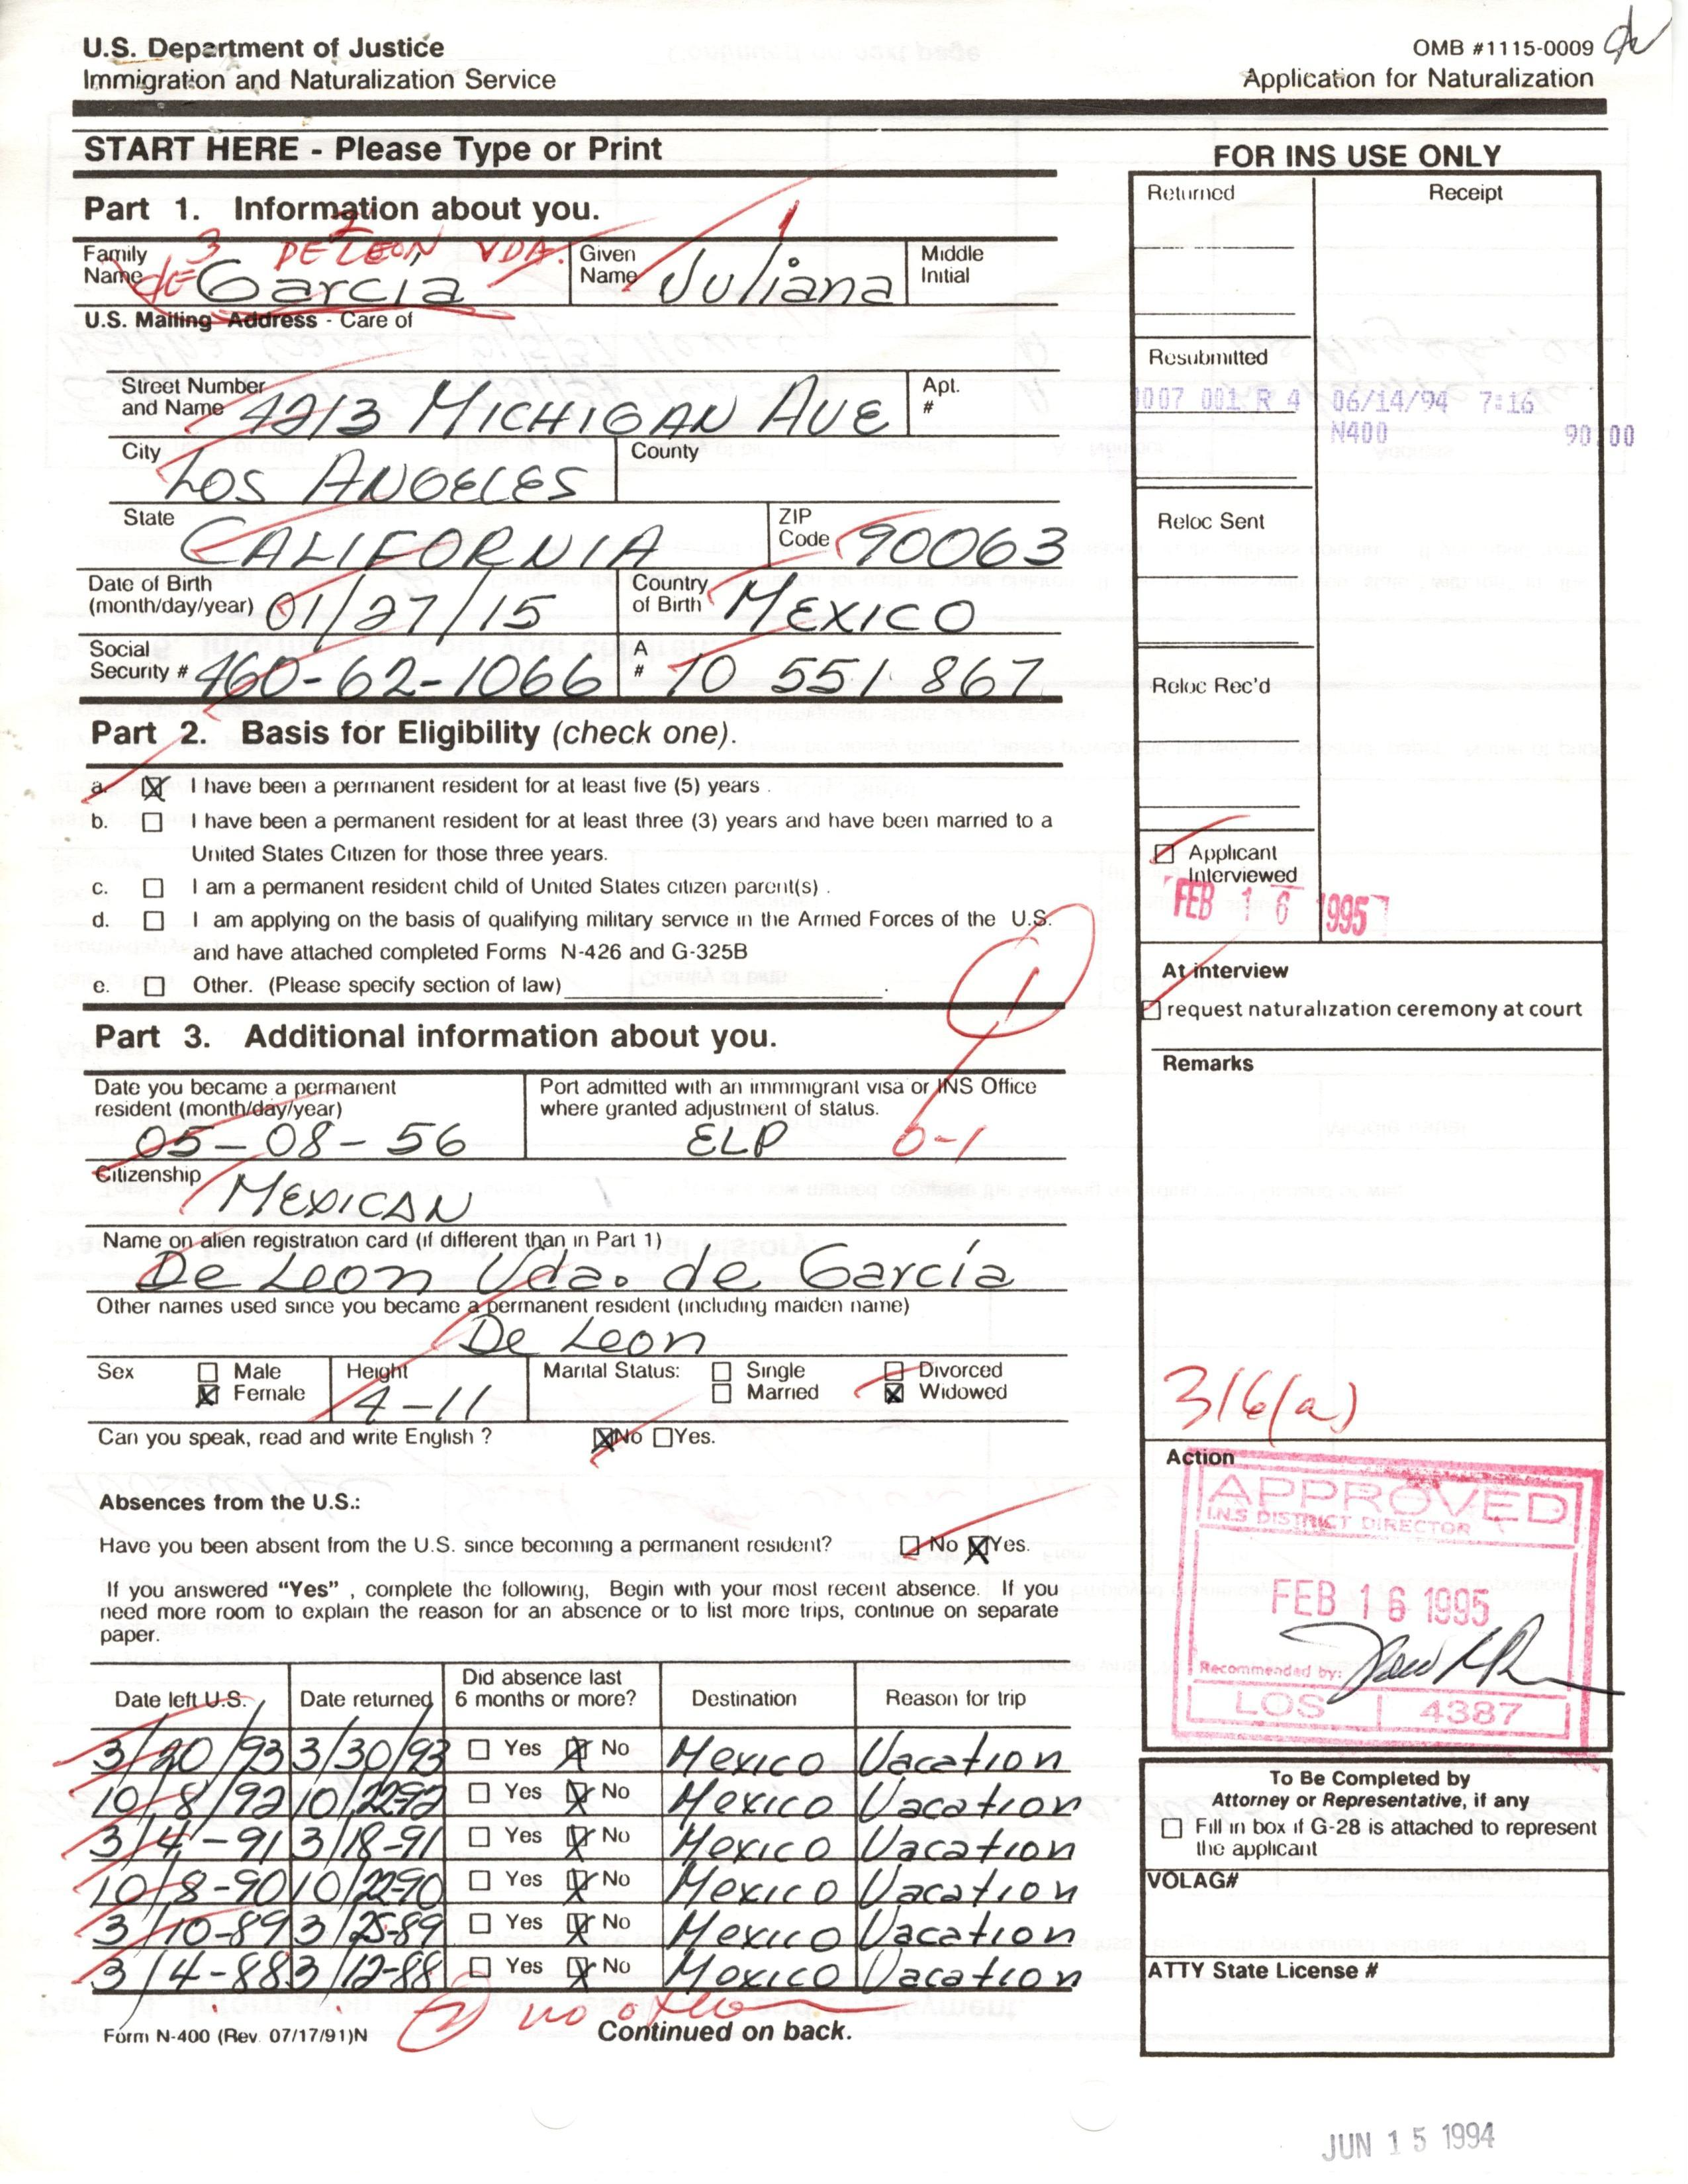 U.S. Department of Justice
Immigration and Naturalization Service
OMB #1115-0009
Application for Naturalization
START HERE - Please Type or Print
Part 1. Information about you.
3 DE LEON 2 VDA. 1
Family Name de Garcia
Given Name Juliana
Middle Initial
U.S. Mailing Address - Care of
Street Number and Name 4213 MICHIGAN AVE
Apt. #
City LOS ANGELES
County
State CALIFORNIA
ZIP Code 90063
Date of Birth (month/day/year) 01/27/15
Country of Birth MEXICO
Social Security # 460-62-1066
A # 10 551 867
Part 2. Basis for Eligibility (check one).
a. I have been a permanent resident for at least five (5) years .
b. I have been a permanent resident for at least three (3) years and have been married to a
United States Citizen for those three years.
c. I am a permanent resident child of United States citizen parent(s) .
d. I am applying on the basis of qualifying military service in the Armed Forces of the U.S.
and have attached completed Forms N-426 and G-325B
e. Other. (Please specify section of law)
Part 3. Additional information about you.
Date you became a permanent resident (month/day/year) 05-08-56
Port admitted with an immmigrant visa or INS Office where granted adjustment of status.
ELP
0-1
Citizenship MEXICAN
Name on alien registration card (if different than in Part 1)
De Leon Vda. de Garcia
Other names used since you became a permanent resident (including maiden name)
De Leon
Sex Male Female
Height 4-11
Marital Status: Single Married Divorced Widowed
Can you speak, read and write English ? No Yes.
Absences from the U.S.:
Have you been absent from the U.S. since becoming a permanent resident? No Yes.
If you answered “Yes” , complete the following, Begin with your most recent absence. If you
need more room to explain the reason for an absence or to list more trips, continue on separate
paper.
Date left U.S. Date returned Did absence last 6 months or more? Destination Reason for trip
3/20/93 3/30/93 Yes No Mexico Vacation
10/8/92 10/22-92 Yes No Mexico Vacation
3/4-91 3/18-91 Yes No Mexico Vacation
10/8-90 10/22-90 Yes No Mexico Vacation
3/10-89 3/25-89 Yes No Mexico Vacation
3/4-88 3/12-88 Yes No Mexico Vacation
2 no
Form N-400 (Rev. 07/17/91)N
Continued on back.
FOR INS USE ONLY
Returned
Receipt
Resubmitted
007 001 R 4 06/14/94 7:16
N400 90.00
Reloc Sent
Reloc Rec'd
Applicant Interviewed
FEB 16 1995
At interview
request naturalization ceremony at court
Remarks
316(a)
Action
APPROVED
I.N.S DISTRICT DIRECTOR
FEB 16 1995
Recommended by:
LOS 4387
To Be Completed by
Attorney or Representative, if any
Fill in box if G-28 is attached to represent
the applicant
VOLAG#
ATTY State License #
JUN 15 1994